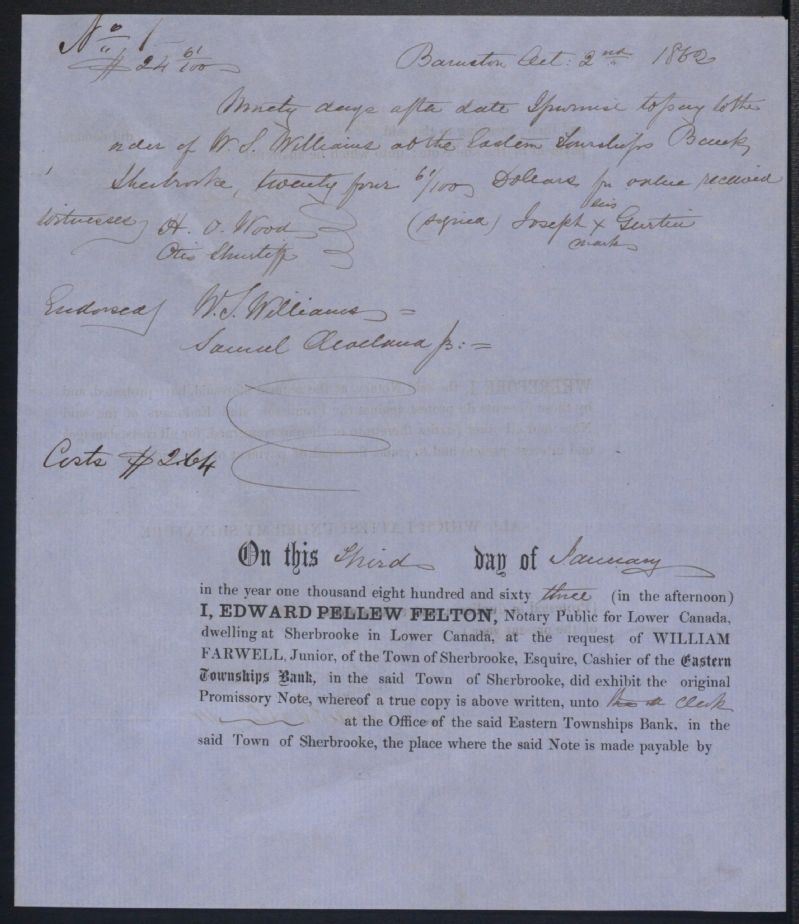 No 1
$24 61/100
Barnston Oct: 2nd 1862
Ninety days after date I promise to pay to the
order of W. S. Williams at the Eastern Townships Bank,
Sherbrooke, twenty four 61/100 Dollars for value received
his
Witnesses H. O. Wood (signed) Joseph x
mark
Otis Shurtleff
Endorsed W. S. Williams =
Samuel Cleaveland Jr: =
Costs $2.64
On this Third day of January
in the year one thousand eight hundred and sixty three (in the afternoon)
I, EDWARD PELLEW FELTON, Notary Public for Lower Canada,
dwelling at Sherbrooke in Lower Canada, at the request of WILLIAM
FARWELL, Junior, of the Town of Sherbrooke, Esquire, Cashier of the Eastern
Townships Bank, in the said Town of Sherbrooke, did exhibit the original
Promissory Note, whereof a true copy is above written, unto a Clerk
at the Office of the said Eastern Townships Bank, in the
said Town of Sherbrooke, the place where the said Note is made payable by